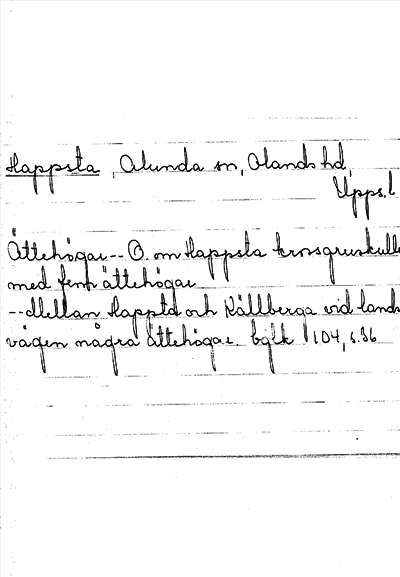 Happsta, Alunda sn, Olands hd,
Upps.l
Ättehögar-- O. om Happsta krosgruskulle
med fem ättehögar
--Mellan Happsta och Källberga vid lands
vägen några ättehögar bglk 104, s.36